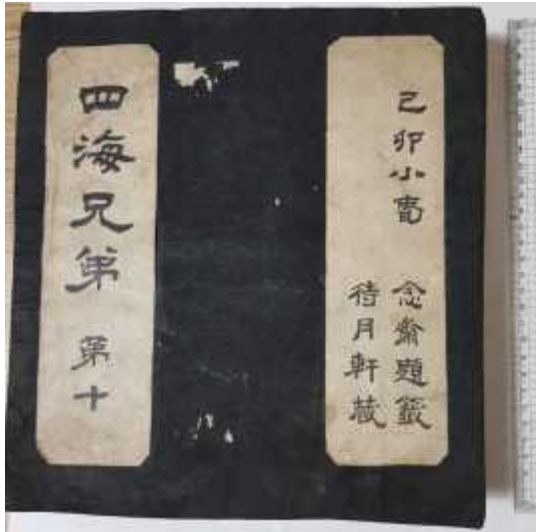 己卯小旾 念齋題籤
待月軒藏
四海兄弟 第十